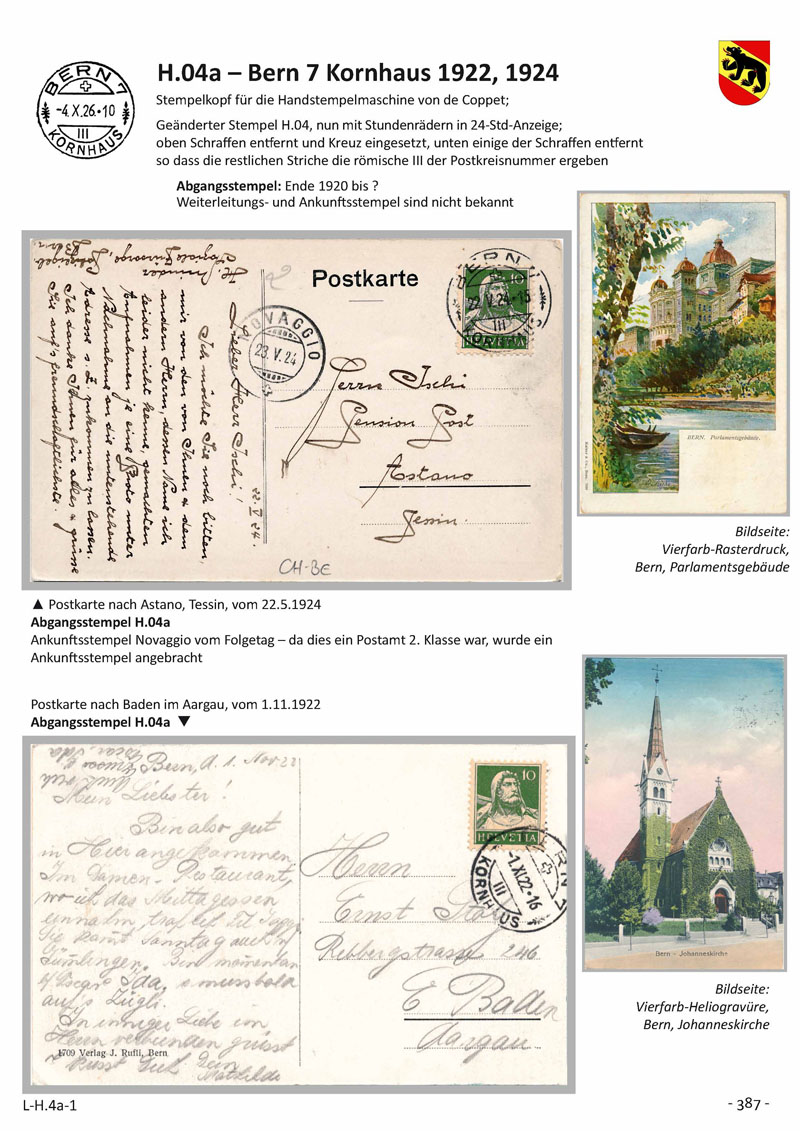 H.04a – Bern 7 Kornhaus 1922, 1924
BERN 7
-4.X.26.•10
III
KORNHAUS
Stempelkopf für die Handstempelmaschine von de Coppet;
Geänderter Stempel H.04, nun mit Stundenrädern in 24-Std-Anzeige;
oben Schraffen entfernt und Kreuz eingesetzt, unten einige der Schraffen entfernt
so dass die restlichen Striche die römische III der Postkreisnummer ergeben
Abgangsstempel: Ende 1920 bis ?
Weiterleitungs- und Ankunftsstempel sind nicht bekannt
Postkarte
BERN
22.V.24-16
III
HELVETIA
NOVAGGIO
23.V.24
Lieber Herr Ischi!
Ich möchte Sie noch bitten,
mir von den von Ihnen & dem
andern Herrn, dessen Name ich
leider nicht kenne, gemachten
Aufnahmen je eine Photo unter
Nachnahme an die untenstehende
Adresse z. Z. zukommen zu lassen.
Ich danke Ihnen für alles & grüsse
Sie auf's freundschaftlichste.
22. V 24.
Herrn Ischi
Pension Post
Astano
Tessin.
CH-BE
BERN. Parlamentsgebäude.
Bildseite:
Vierfarb-Rasterdruck,
Bern, Parlamentsgebäude
▲ Postkarte nach Astano, Tessin, vom 22.5.1924
Abgangsstempel H.04a
Ankunftsstempel Novaggio vom Folgetag – da dies ein Postamt 2. Klasse war, wurde ein
Ankunftsstempel angebracht
Postkarte nach Baden im Aargau, vom 1.11.1922
Abgangsstempel H.04a ▼
Bern, d. 1. Nov 22
Mein Liebster!
Bin also gut
in Hier angekommen,
Im Damen-Restaurant,
wo ich das Mittagessen
einnahm, traf
Sie kommt Sonntag auch in
Gümlingen. Bin momentan
b/ Oscar Ida, muss bald
auf's Zügli.
In inniger Liebe im
Herrn verbunden grüsst
& küsst Dich Dein
Mathilde
1709 Verlag J. Rufli, Bern
10
HELVETIA
BERN 7
-1.XI.22-16
III
KORNHAUS
Herrn
Ernst
Rebbergstrasse 246
E Baden
Aargau
Bern - Johanneskirche
Bildseite:
Vierfarb-Heliogravüre,
Bern, Johanneskirche
L-H.4a-1
- 387 -